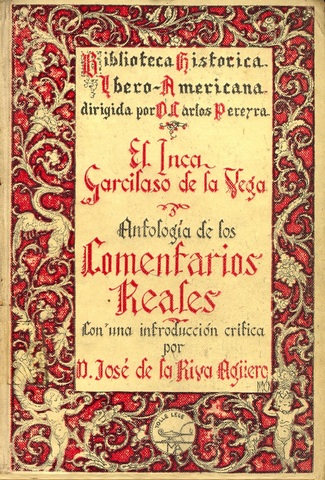 Biblioteca Historica
Ibero-Americana
dirigida por D. Carlos Pereyra
El Inca
Garcilaso de la Vega
Antología de los
Comentarios
Reales
Con una introducción crítica
por
D. José de la Riva Agüero